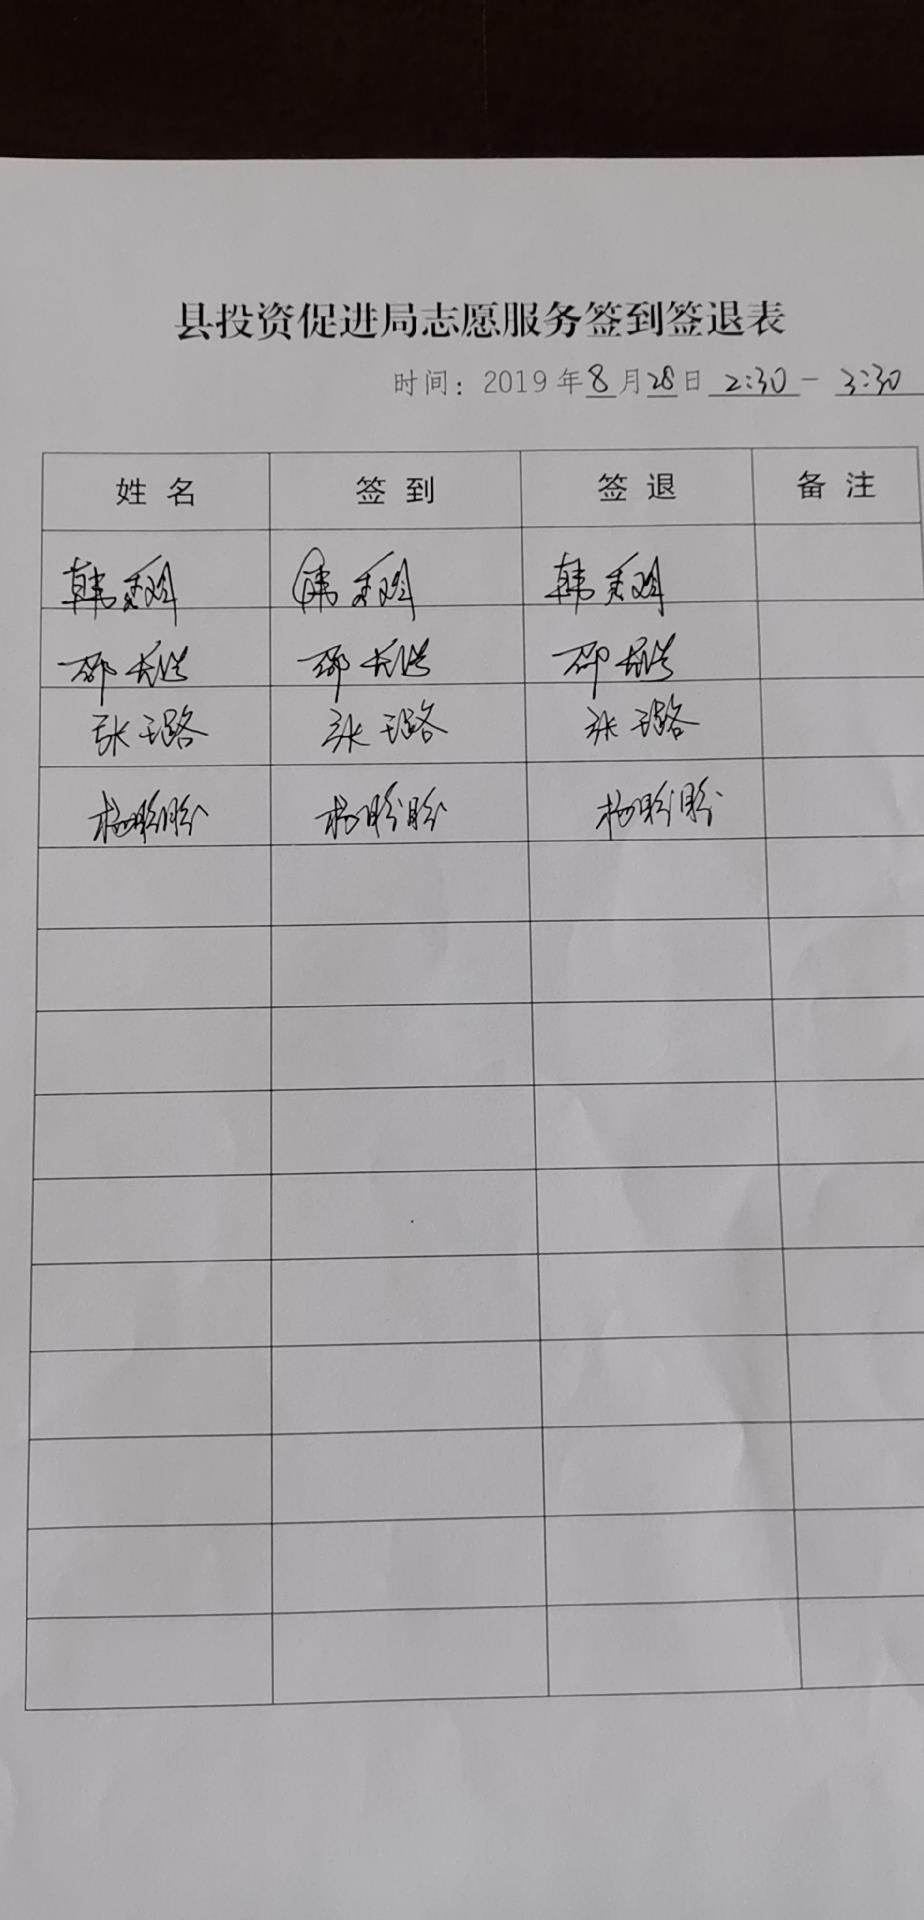 县投资促进局志愿服务签到签退表
时间：2019年8月28日 2:30－3:30
姓名 签到 签退 备注
韩 韩 韩
邵 邵 邵
张璐 张璐 张璐
杨盼盼 杨盼盼 杨盼盼